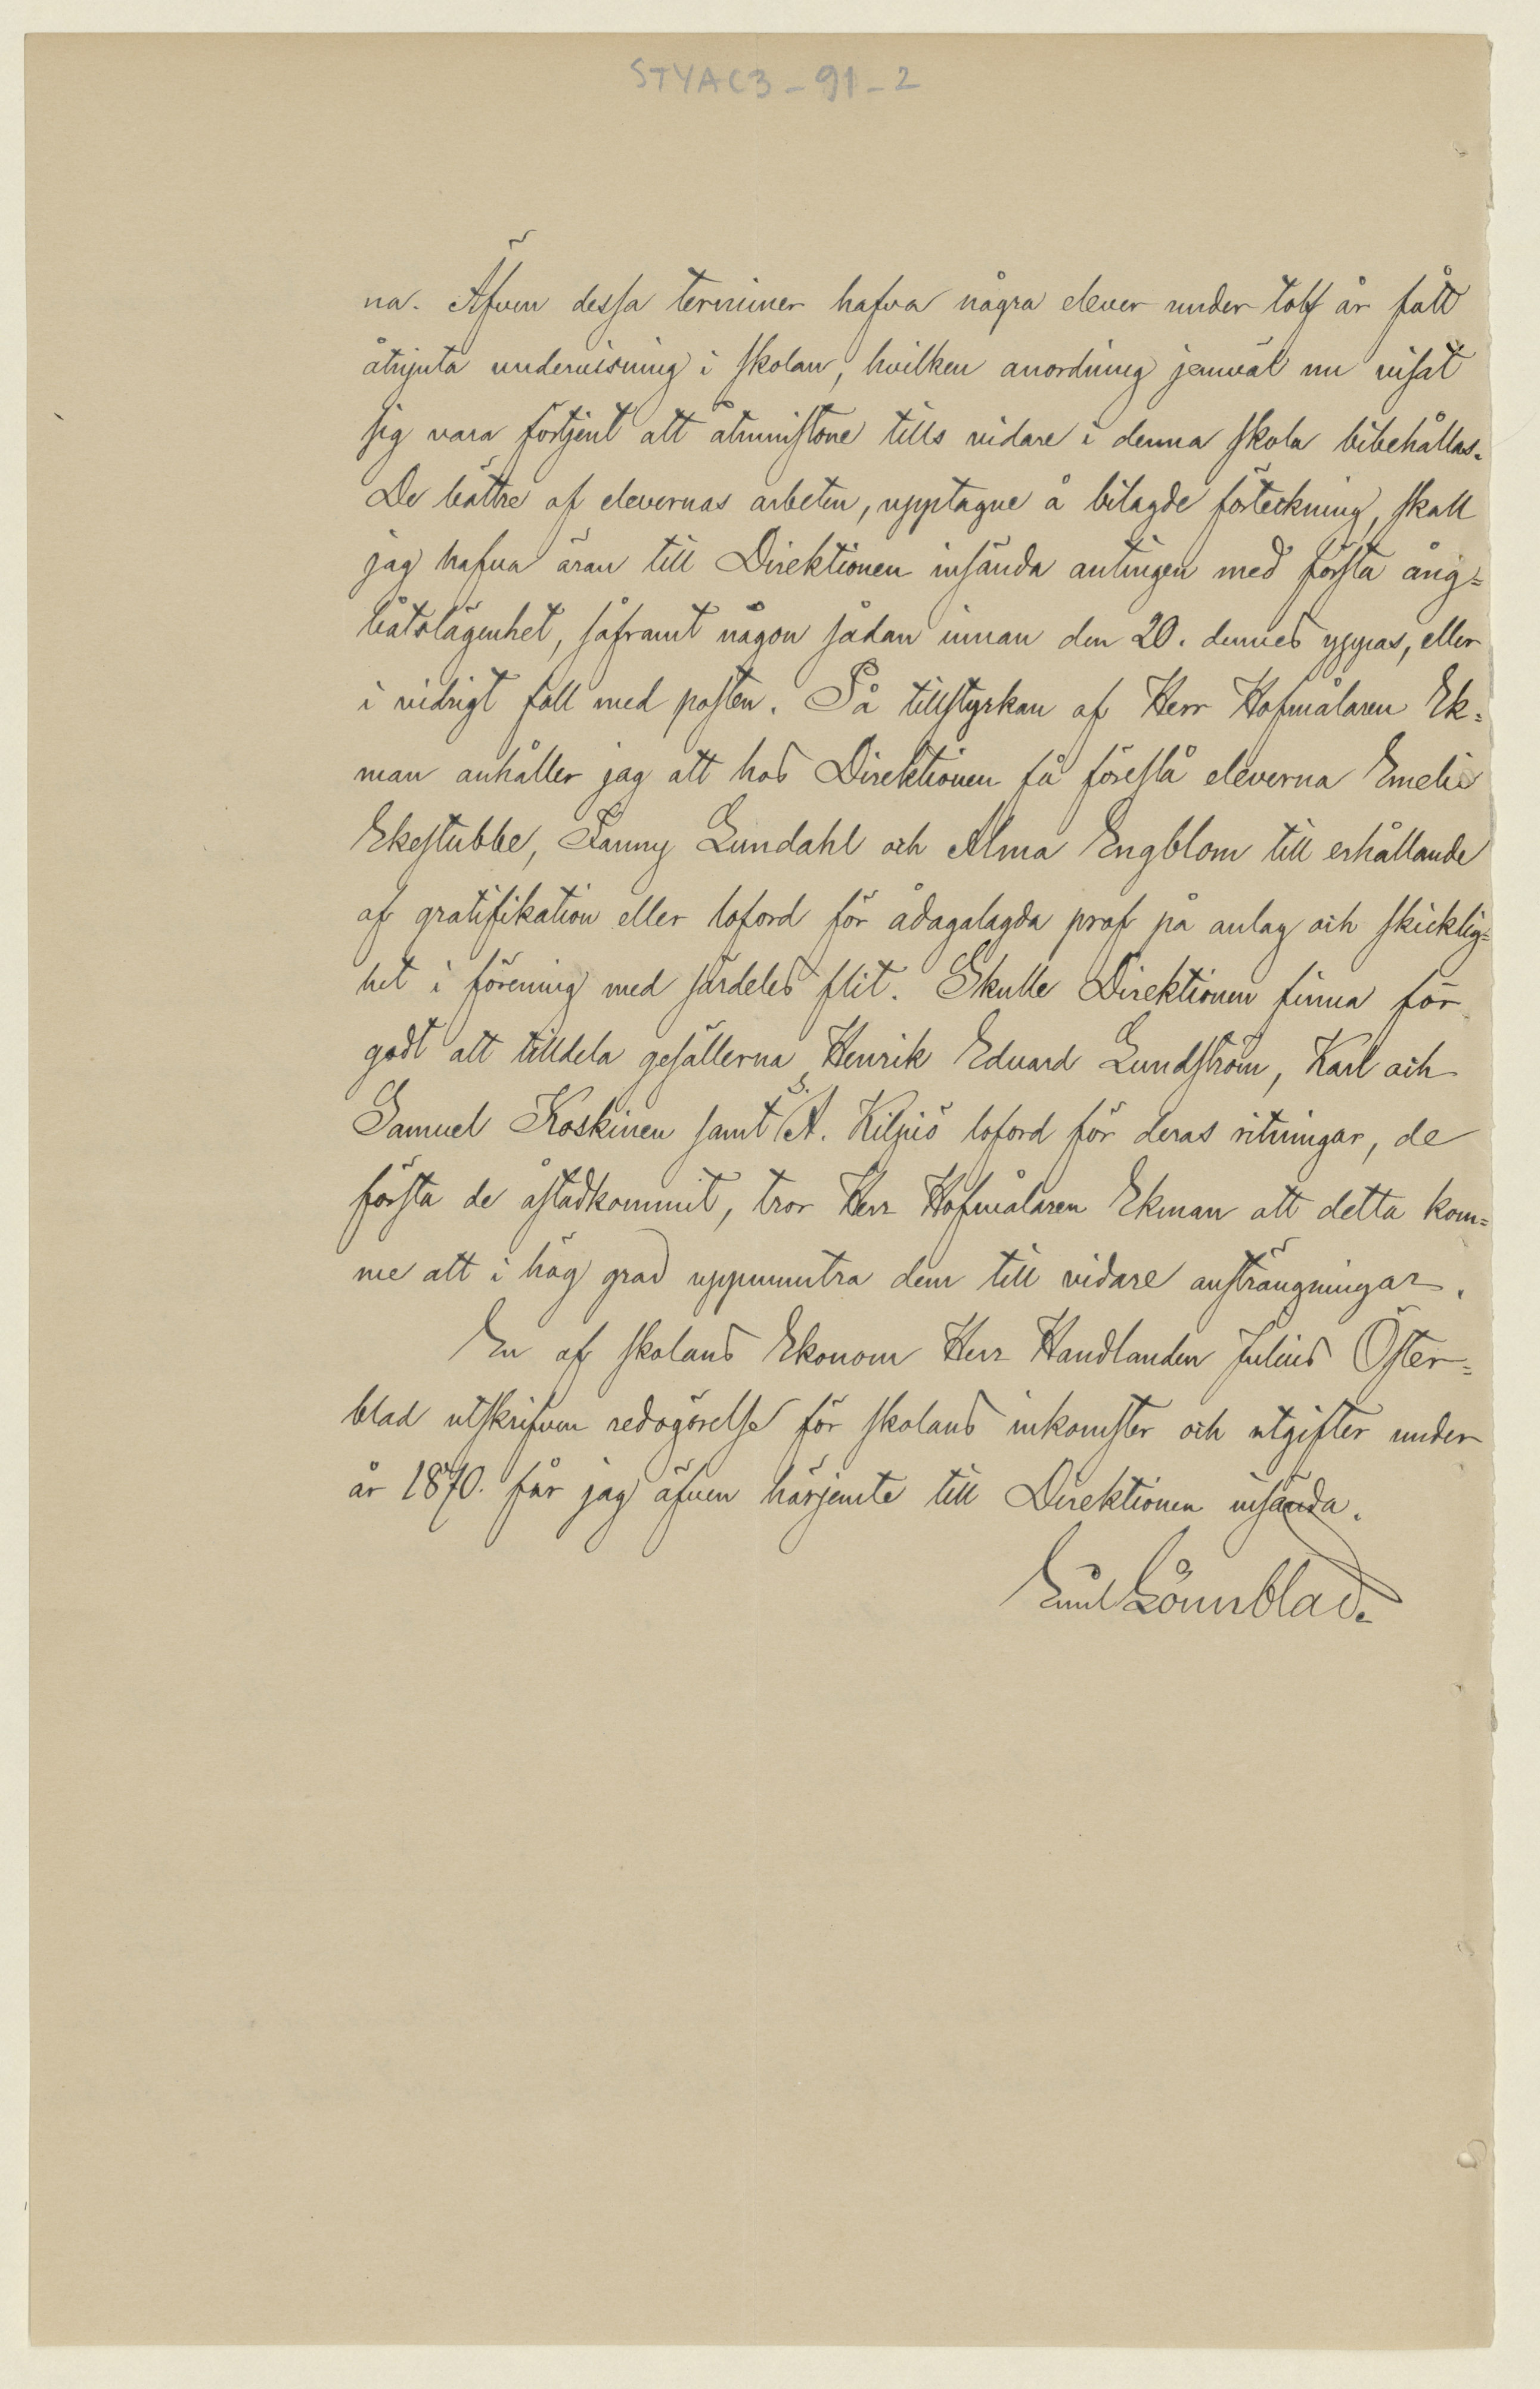 STYAC3-91-2
na. Äfven dessa terminer hafva några elever under tolf år fått
åtnjuta undervisning i skolan, hvilken anordning jemväl nu visat
sig vara förtjent att åtminstone tills vidare i denna skola bibehållas.
De bättre af elevernas arbeten, upptagne å bilagde förteckning, skall
jag hafva äran till Direktionen insända antingen med första ång=
båtslägenhet, såframt någon sådan innan den 20. dennes yppas, eller
i vidrigt fall med posten. På tillstyrkan af Herr Hofmålaren Ek=
man anhåller jag att hos Direktionen få föreslå eleverna Emelie
Ekestubbe, Fanny Lundahl och Alma Engblom till erhållande
af gratifikation eller loford för ådagalagda prof på anlag och skicklig=
het i förening med särdeles flit. Skulle Direktionen finna för
godt att tilldela gesällerna Henrik Eduard Lundström, Karl och
Samuel Koskinen samt S. A. Kilpiö loford för deras ritningar, de
första de åstadkommit, tror Herr Hofmålaren Ekman att detta kom=
me att i hög grad uppmuntra dem till vidare ansträngningar.
En af skolans Ekonom Herr Handlanden Julius Öster=
blad utskrifven redogörelse för skolans inkomster och utgifter under
år 1870. får jag äfven härjemte till Direktionen insända.
Emil Lönnblad.